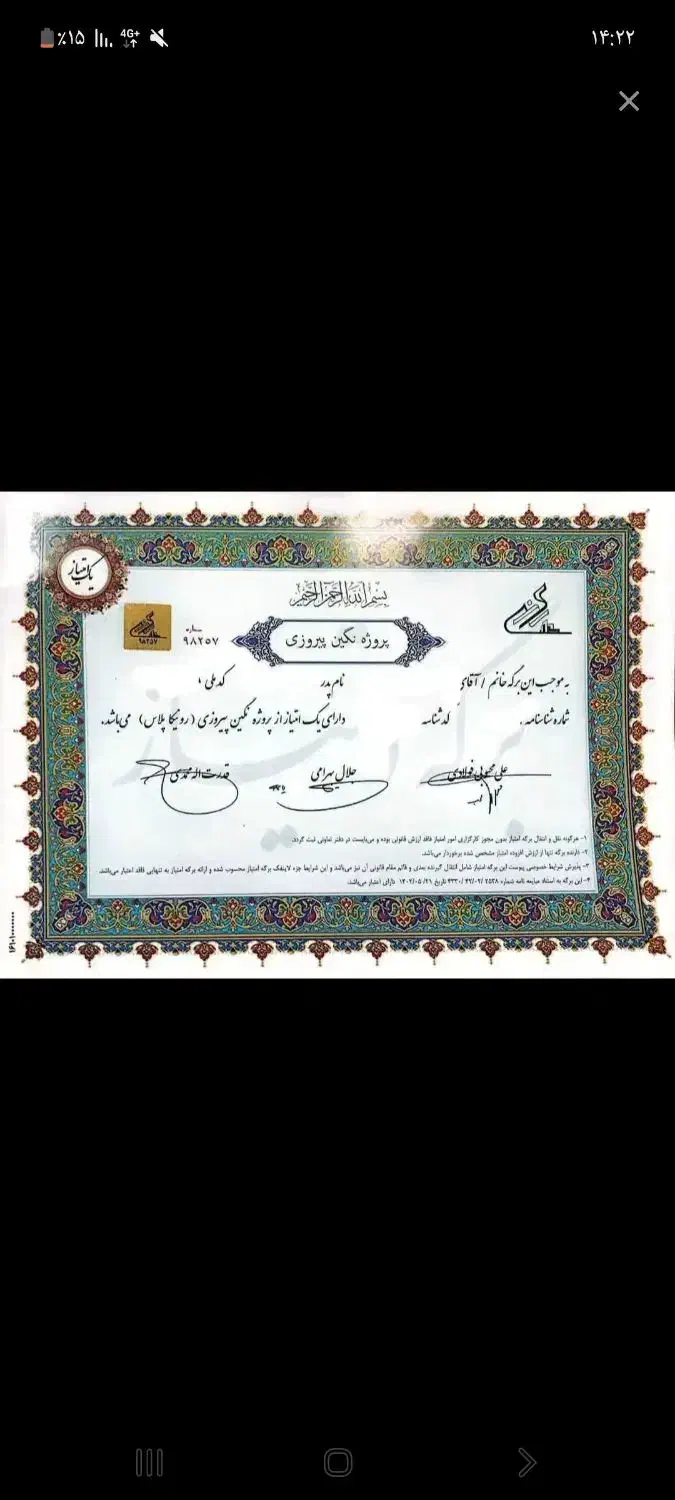 ٪۱۵ 4G+ ۱۴:۲۲
یک امتیاز
بسم الله الرحمن الرحیم
پروژه نگین پیروزی
شماره
۹۸۲۵۷
۹۸۲۵۷
به موجب این برگه خانم / آقای نام پدر کد ملی
شماره شناسنامه کد شناسه دارای یک امتیاز از پروژه نگین پیروزی (رونیکا پلاس) می‌باشد.
جلال بهرامی قدرت اله محمدی
برگه امتیاز
۱- هرگونه نقل و انتقال برگه امتیاز بدون مجوز کارگزاری امور امتیاز فاقد ارزش قانونی بوده و می‌بایست در دفتر تعاونی ثبت گردد.
۲- دارنده برگه تنها از ارزش افزوده امتیاز مشخص شده برخوردار می‌باشد.
۳- پذیرش شرایط خصوصی پیوست این برگه امتیاز شامل انتقال گیرنده بعدی و قائم مقام قانونی آن نیز می‌باشد و این شرایط جزء لاینفک برگه امتیاز محسوب شده و ارائه برگه امتیاز به تنهایی فاقد اعتبار می‌باشد.
۴- این برگه به استناد مبایعه نامه شماره ۲۵۳۸ /۴۲/۰۲ /۴۳۳۰ تاریخ ۱۴۰۲/۰۵/۲۱ دارای اعتبار می‌باشد.